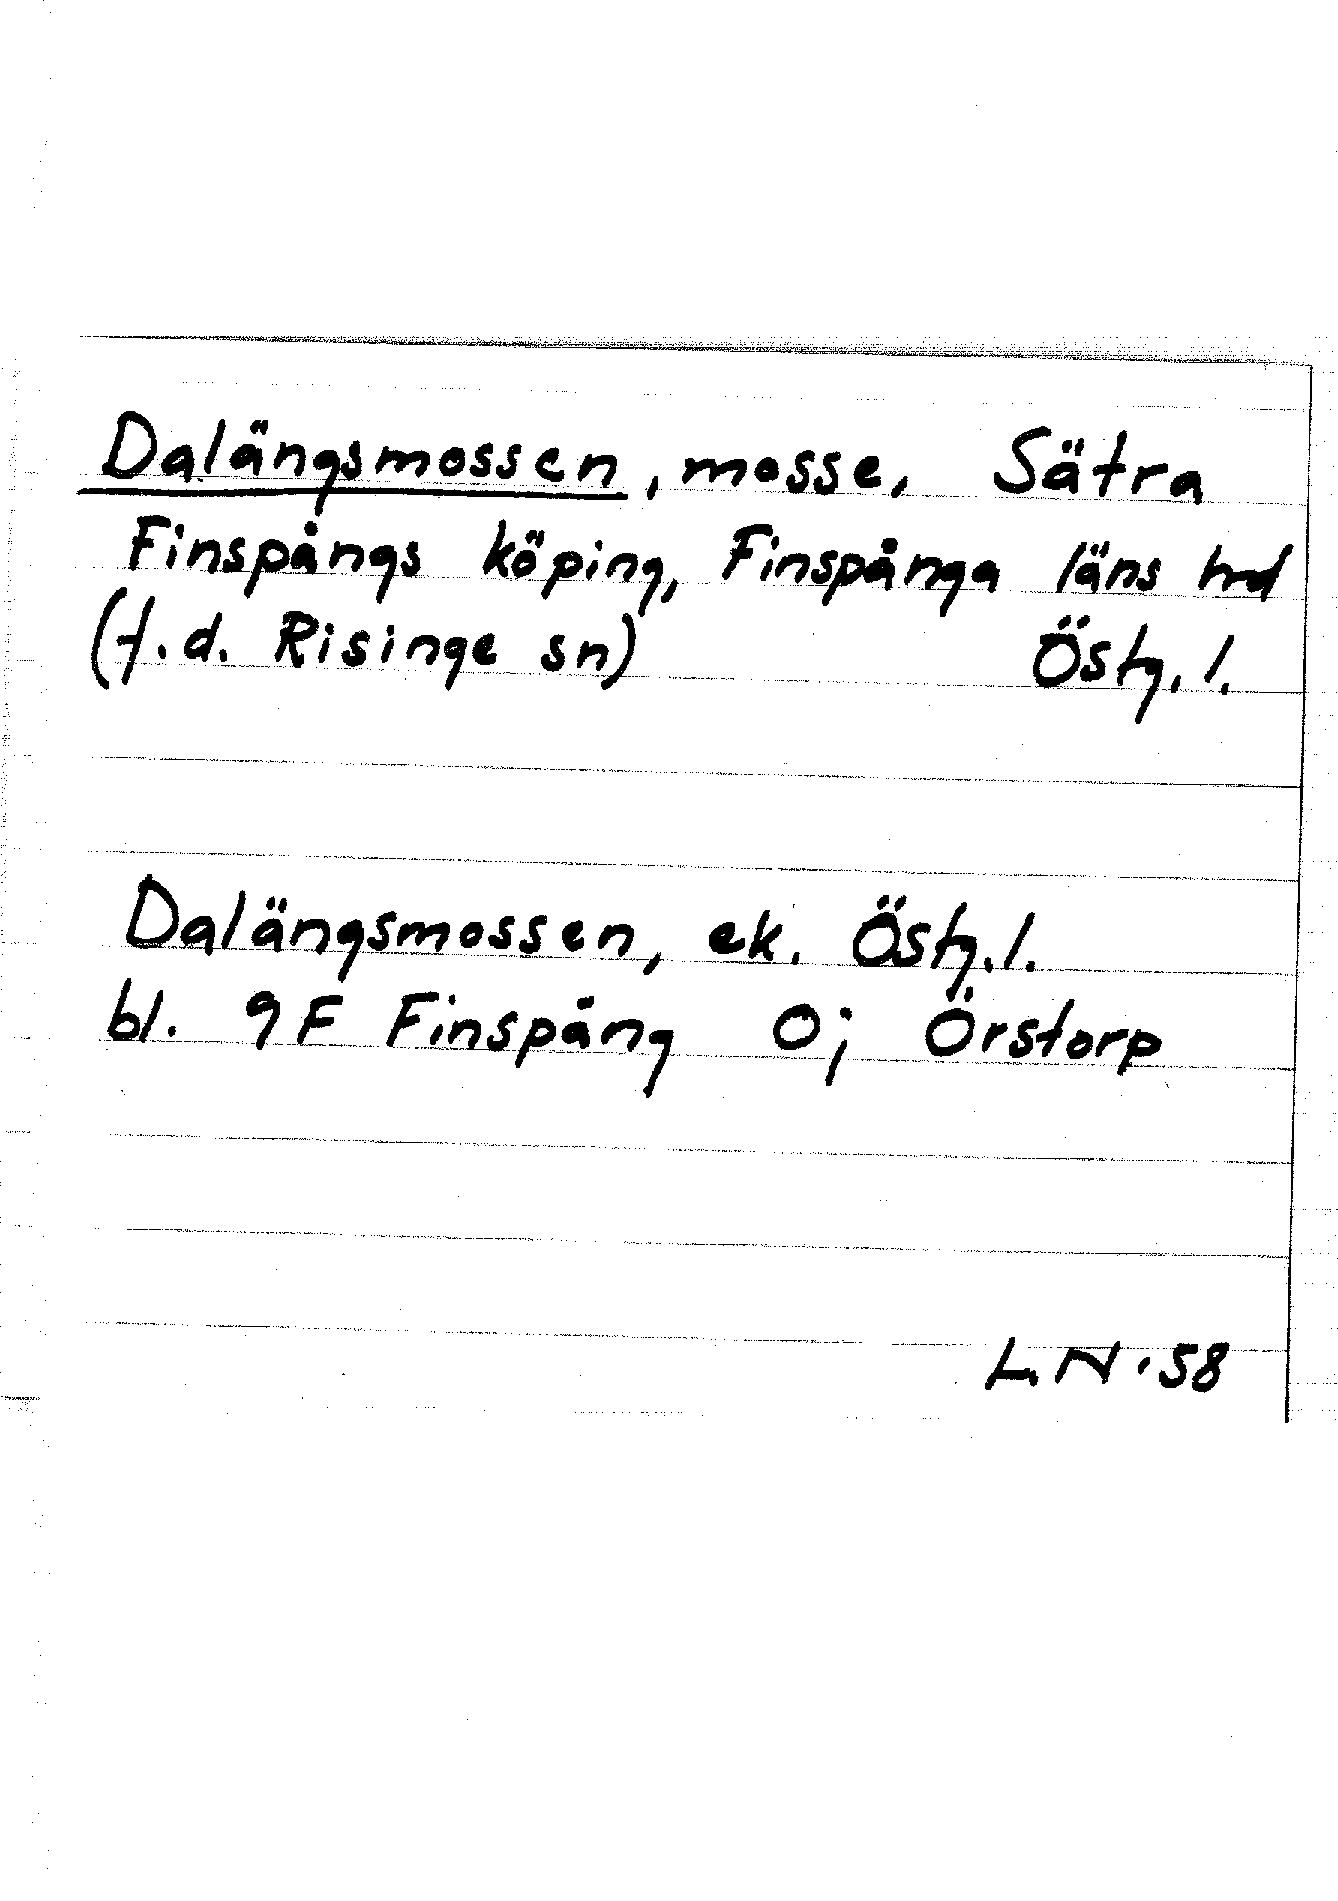 Dalängsmossen, mosse, Sätra
Finspångs köping, Finspånga läns hrd
(f.d. Risinge sn) Östg.l.
Dalängsmossen, ek. Östg.l.
bl. 9F Finspång O; Örstorp
L.N. 58